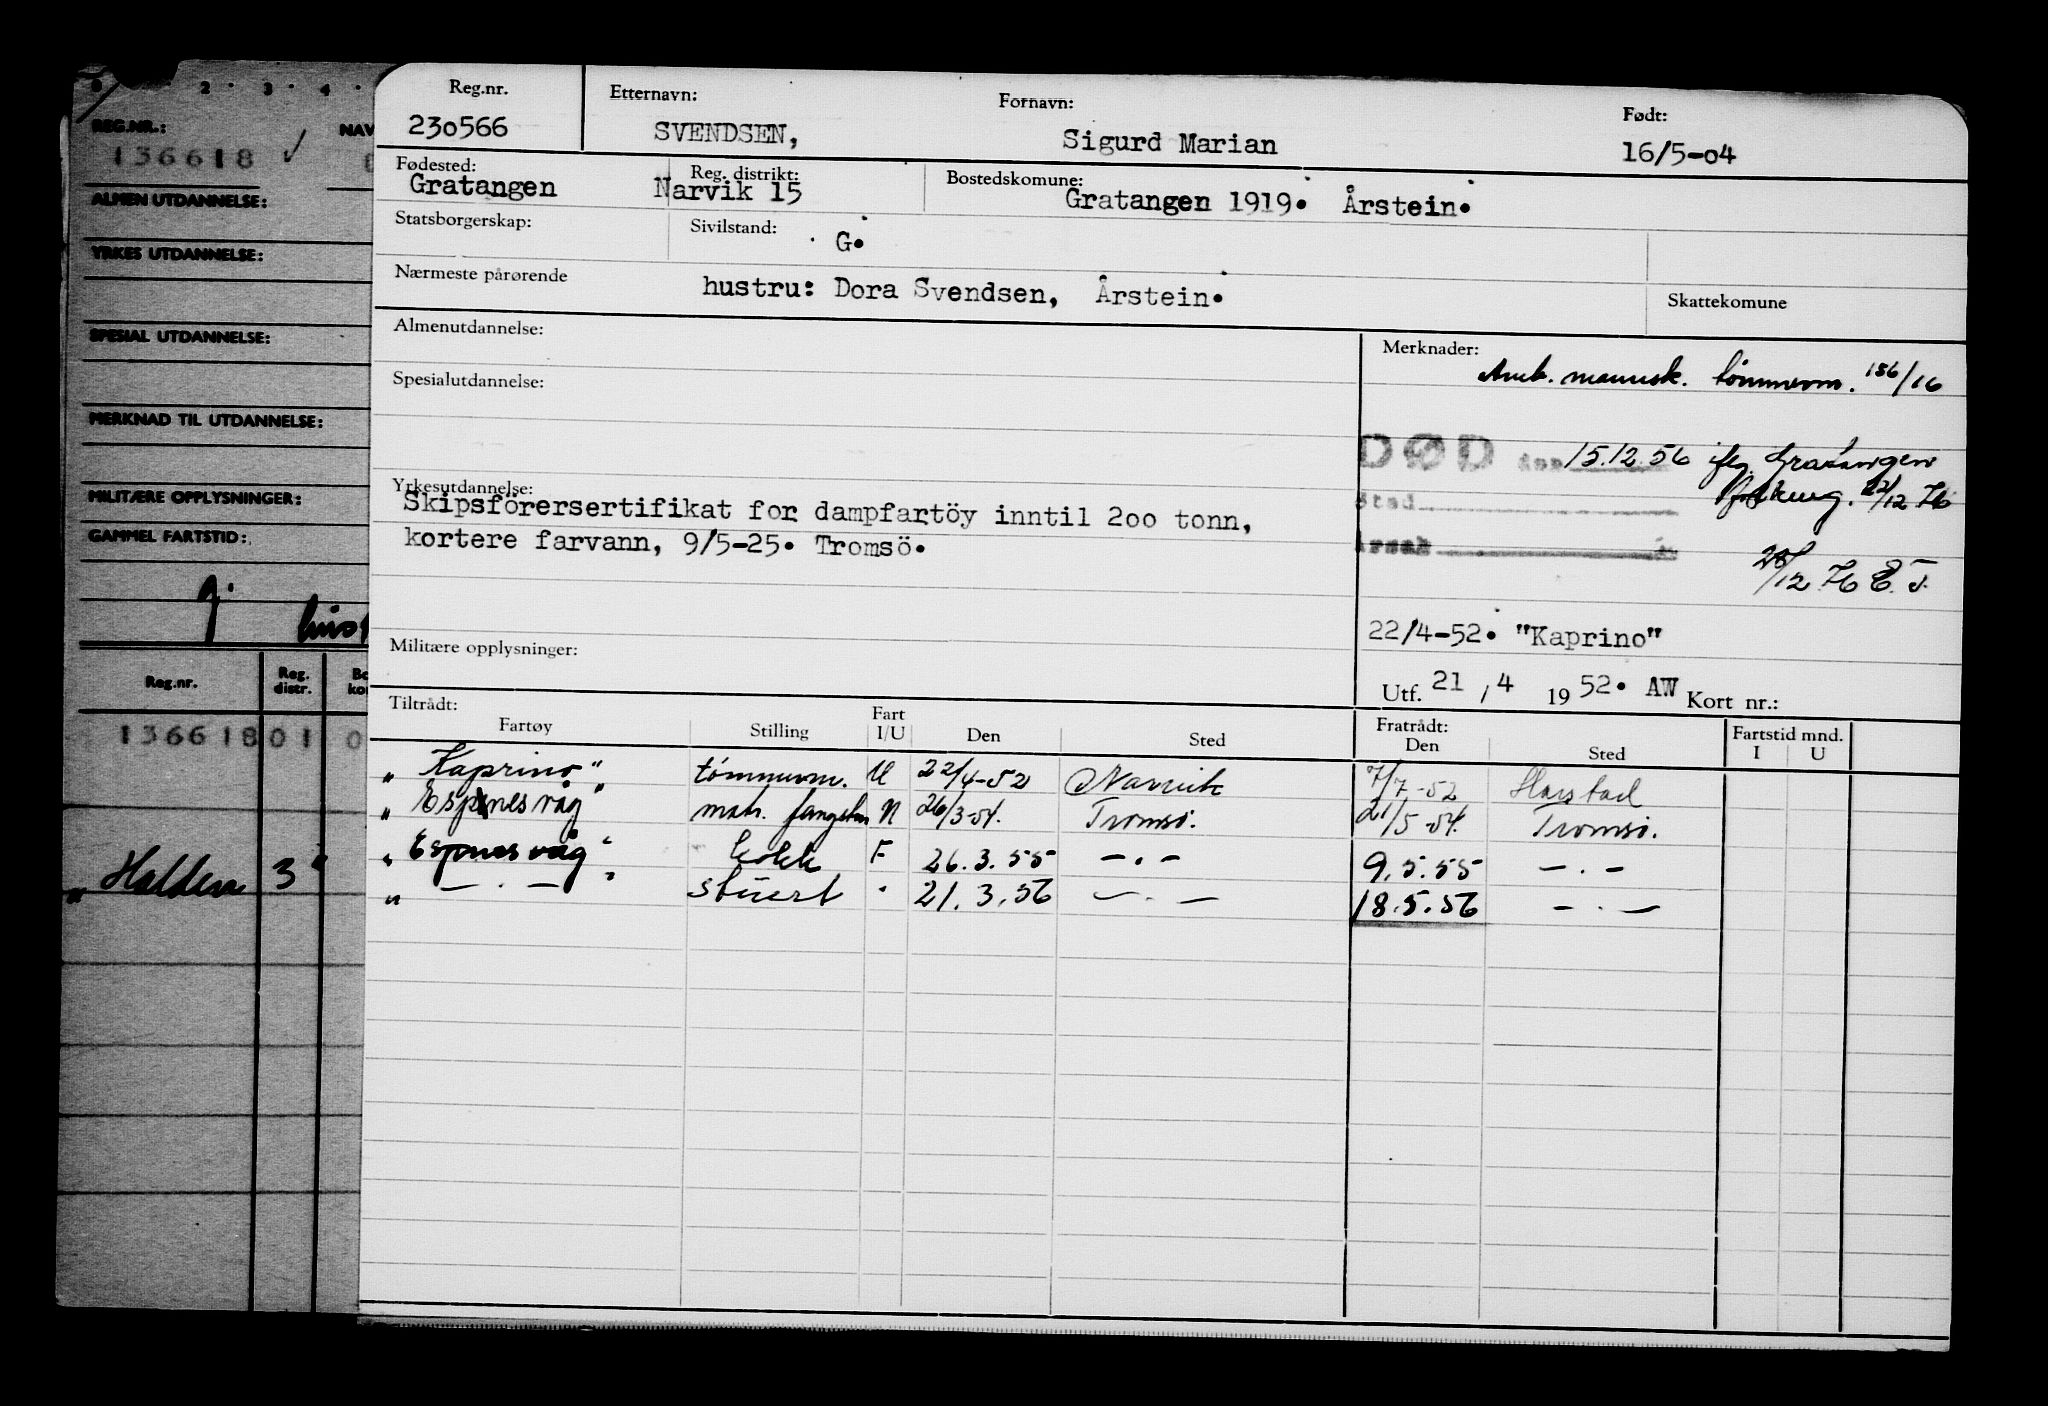 0 2 · 3 · 4 ·
REG.NR.: NAV
136618 ✓
ALMEN UTDANNELSE:
YRKES UTDANNELSE:
SPESIAL UTDANNELSE:
MERKNAD TIL UTDANNELSE:
MILITÆRE OPPLYSNINGER:
GAMMEL FARTSTID:
g.
Reg.nr. Reg. distr. Bo kom
136618 01 0
"Halden 3
Reg.nr. Etternavn: Fornavn: Født:
230566 SVENDSEN, Sigurd Marian 16/5-04
Fødested: Reg. distrikt: Bostedskomune:
Gratangen Narvik 15 Gratangen 1919. Årstein.
Statsborgerskap: Sivilstand: G.
Nærmeste pårørende hustru: Dora Svendsen, Årstein. Skattekomune
Almenutdannelse: Merknader:
Anb. mannsk. tømmerm. 156/16
Spesialutdannelse:
DØD den 15.12.56 iflg. Gratangen
Sted folkereg. 22/12 76
Årsak
28/12 76 E.T.
Yrkesutdannelse:
Skipsförersertifikat for dampfartöy inntil 200 tonn,
kortere farvann, 9/5-25. Tromsö.
22/4-52. "Kaprino"
Militære opplysninger:
Utf. 21 / 4 1952. AW Kort nr.:
Tiltrådt: Fratrådt: Fartstid mnd.
Fartøy Stilling Fart I/U Den Sted Den Sted I U
"Kaprino" tømmerm. U 22/4-52 Narvik 7/7-52 Harstad
"Espenesvåg" matr. fangstm N 26/3-54. Tromsø. 21/5-54. Tromsø.
"Espnesvåg" kokk F 26.3.55 — . — 9.5.55 — . —
" — . — " stuert " 21.3.56 — . — 18.5.56 — . —